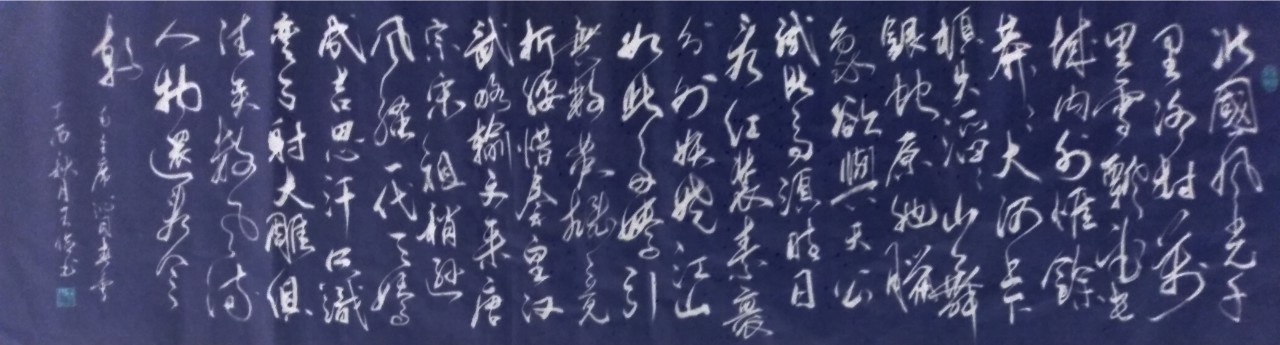 北國風光千
里冰封萬
里雪飄望長
城內外惟餘
莽々大河上下
頓失滔々山舞
銀蛇原馳臘
象欲與天公
試比高須晴日
看紅裝素裹
分外妖嬈江山
如此多嬌引
無數英雄競
折腰惜秦皇漢
武略輸文采唐
宗宋祖稍遜
風騷一代天驕
成吉思汗只識
彎弓射大雕俱
往矣數風流
人物還看今
朝
毛主席沁園春雪
丁酉秋月